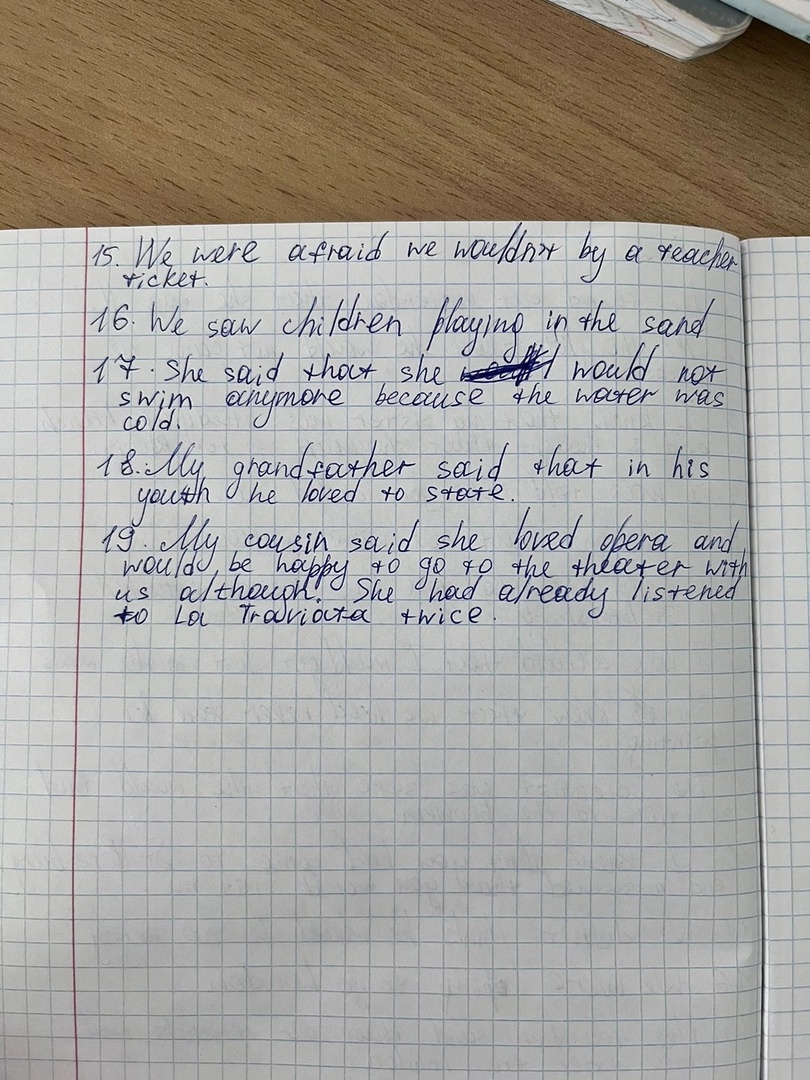 15. We were afraid we wouldn't by a teacher
ticket.
16. We saw children playing in the sand
17. She said that she would not
swim anymore because the water was
cold.
18. My grandfather said that in his
youth he loved to state.
19. My cousin said she loved opera and
would be happy to go to the theater with
us although. She had already listened
to La Traviata twice.